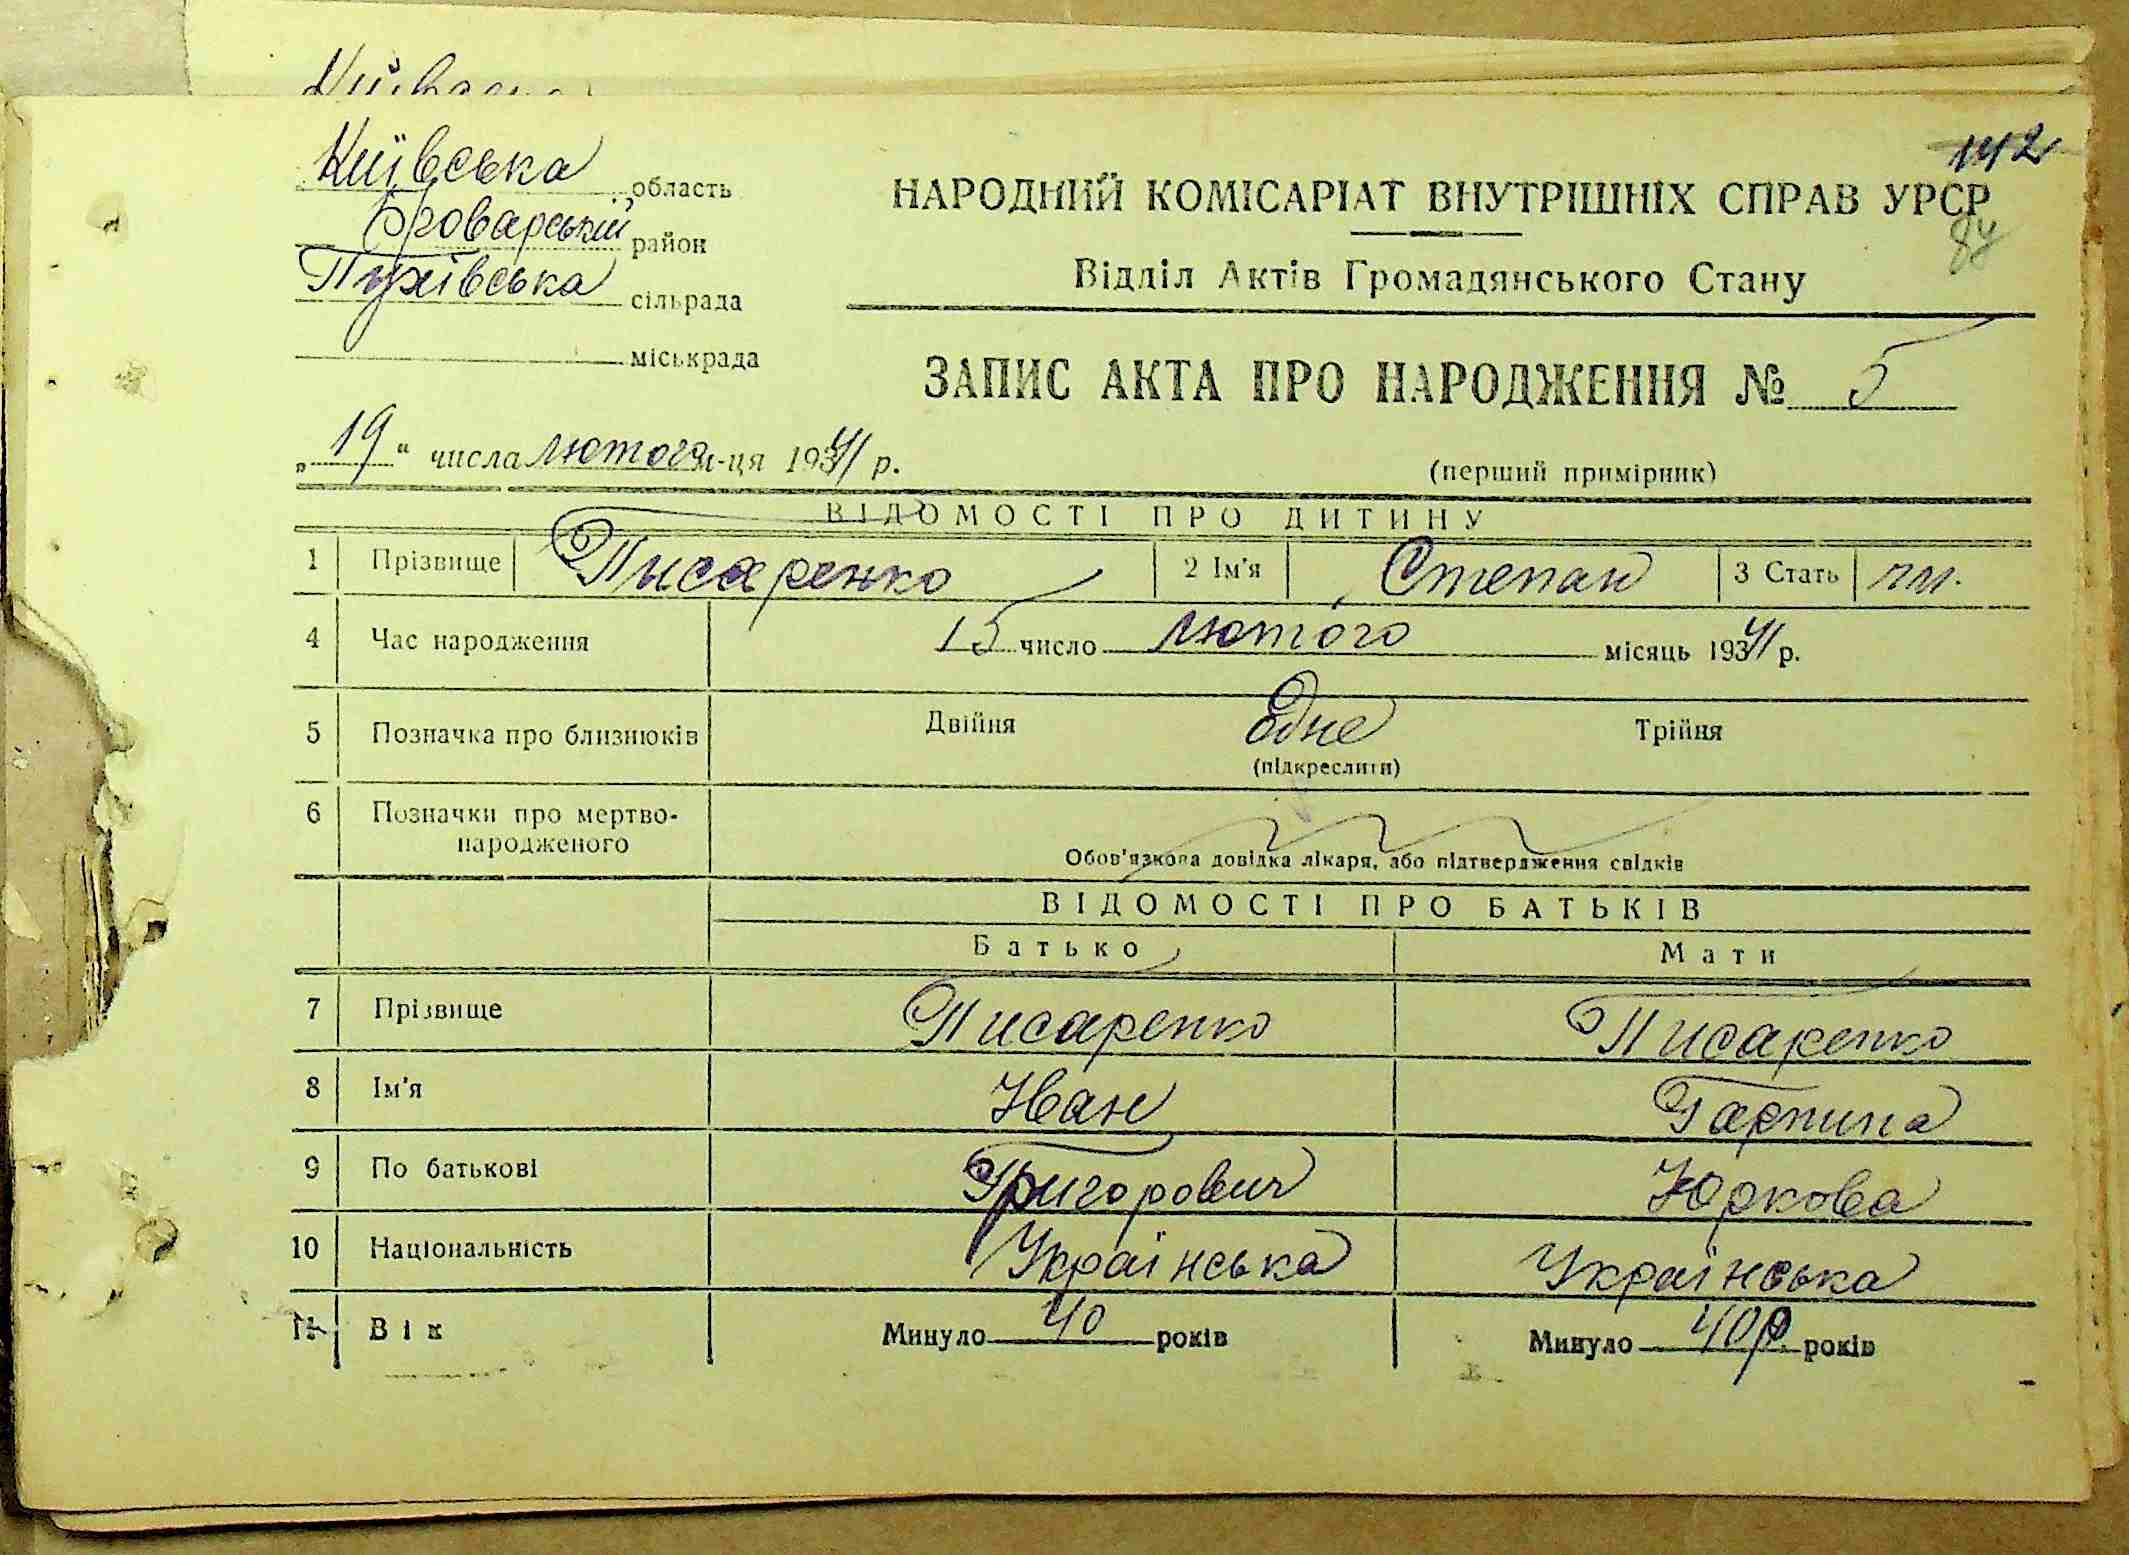 Київська область
Броварський район
Пухівська сільрада
міськрада
142
НАРОДНИЙ КОМІСАРІАТ ВНУТРІШНІХ СПРАВ УРСР
84
Відділ Актів Громадянського Стану
ЗАПИС АКТА ПРО НАРОДЖЕННЯ № 5
„19“ числа лютого м-ця 1941 р.
(перший примірник)
ВІДОМОСТІ ПРО ДИТИНУ
1 Прізвище Писаренко 2 Ім'я Степан 3 Стать чл.
4 Час народження 15 число лютого місяць 1941 р.
5 Позначка про близнюків Двійня Одне Трійня
(підкреслити)
6 Позначки про мертво-
народженого
Обов'язкова довідка лікаря, або підтвердження свідків
ВІДОМОСТІ ПРО БАТЬКІВ
Батько Мати
7 Прізвище Писаренко Писаренко
8 Ім'я Іван Гарпина
9 По батькові Григорович Юркова
10 Національність Українська Українська
11 Вік Минуло 40 років Минуло 40 р. років